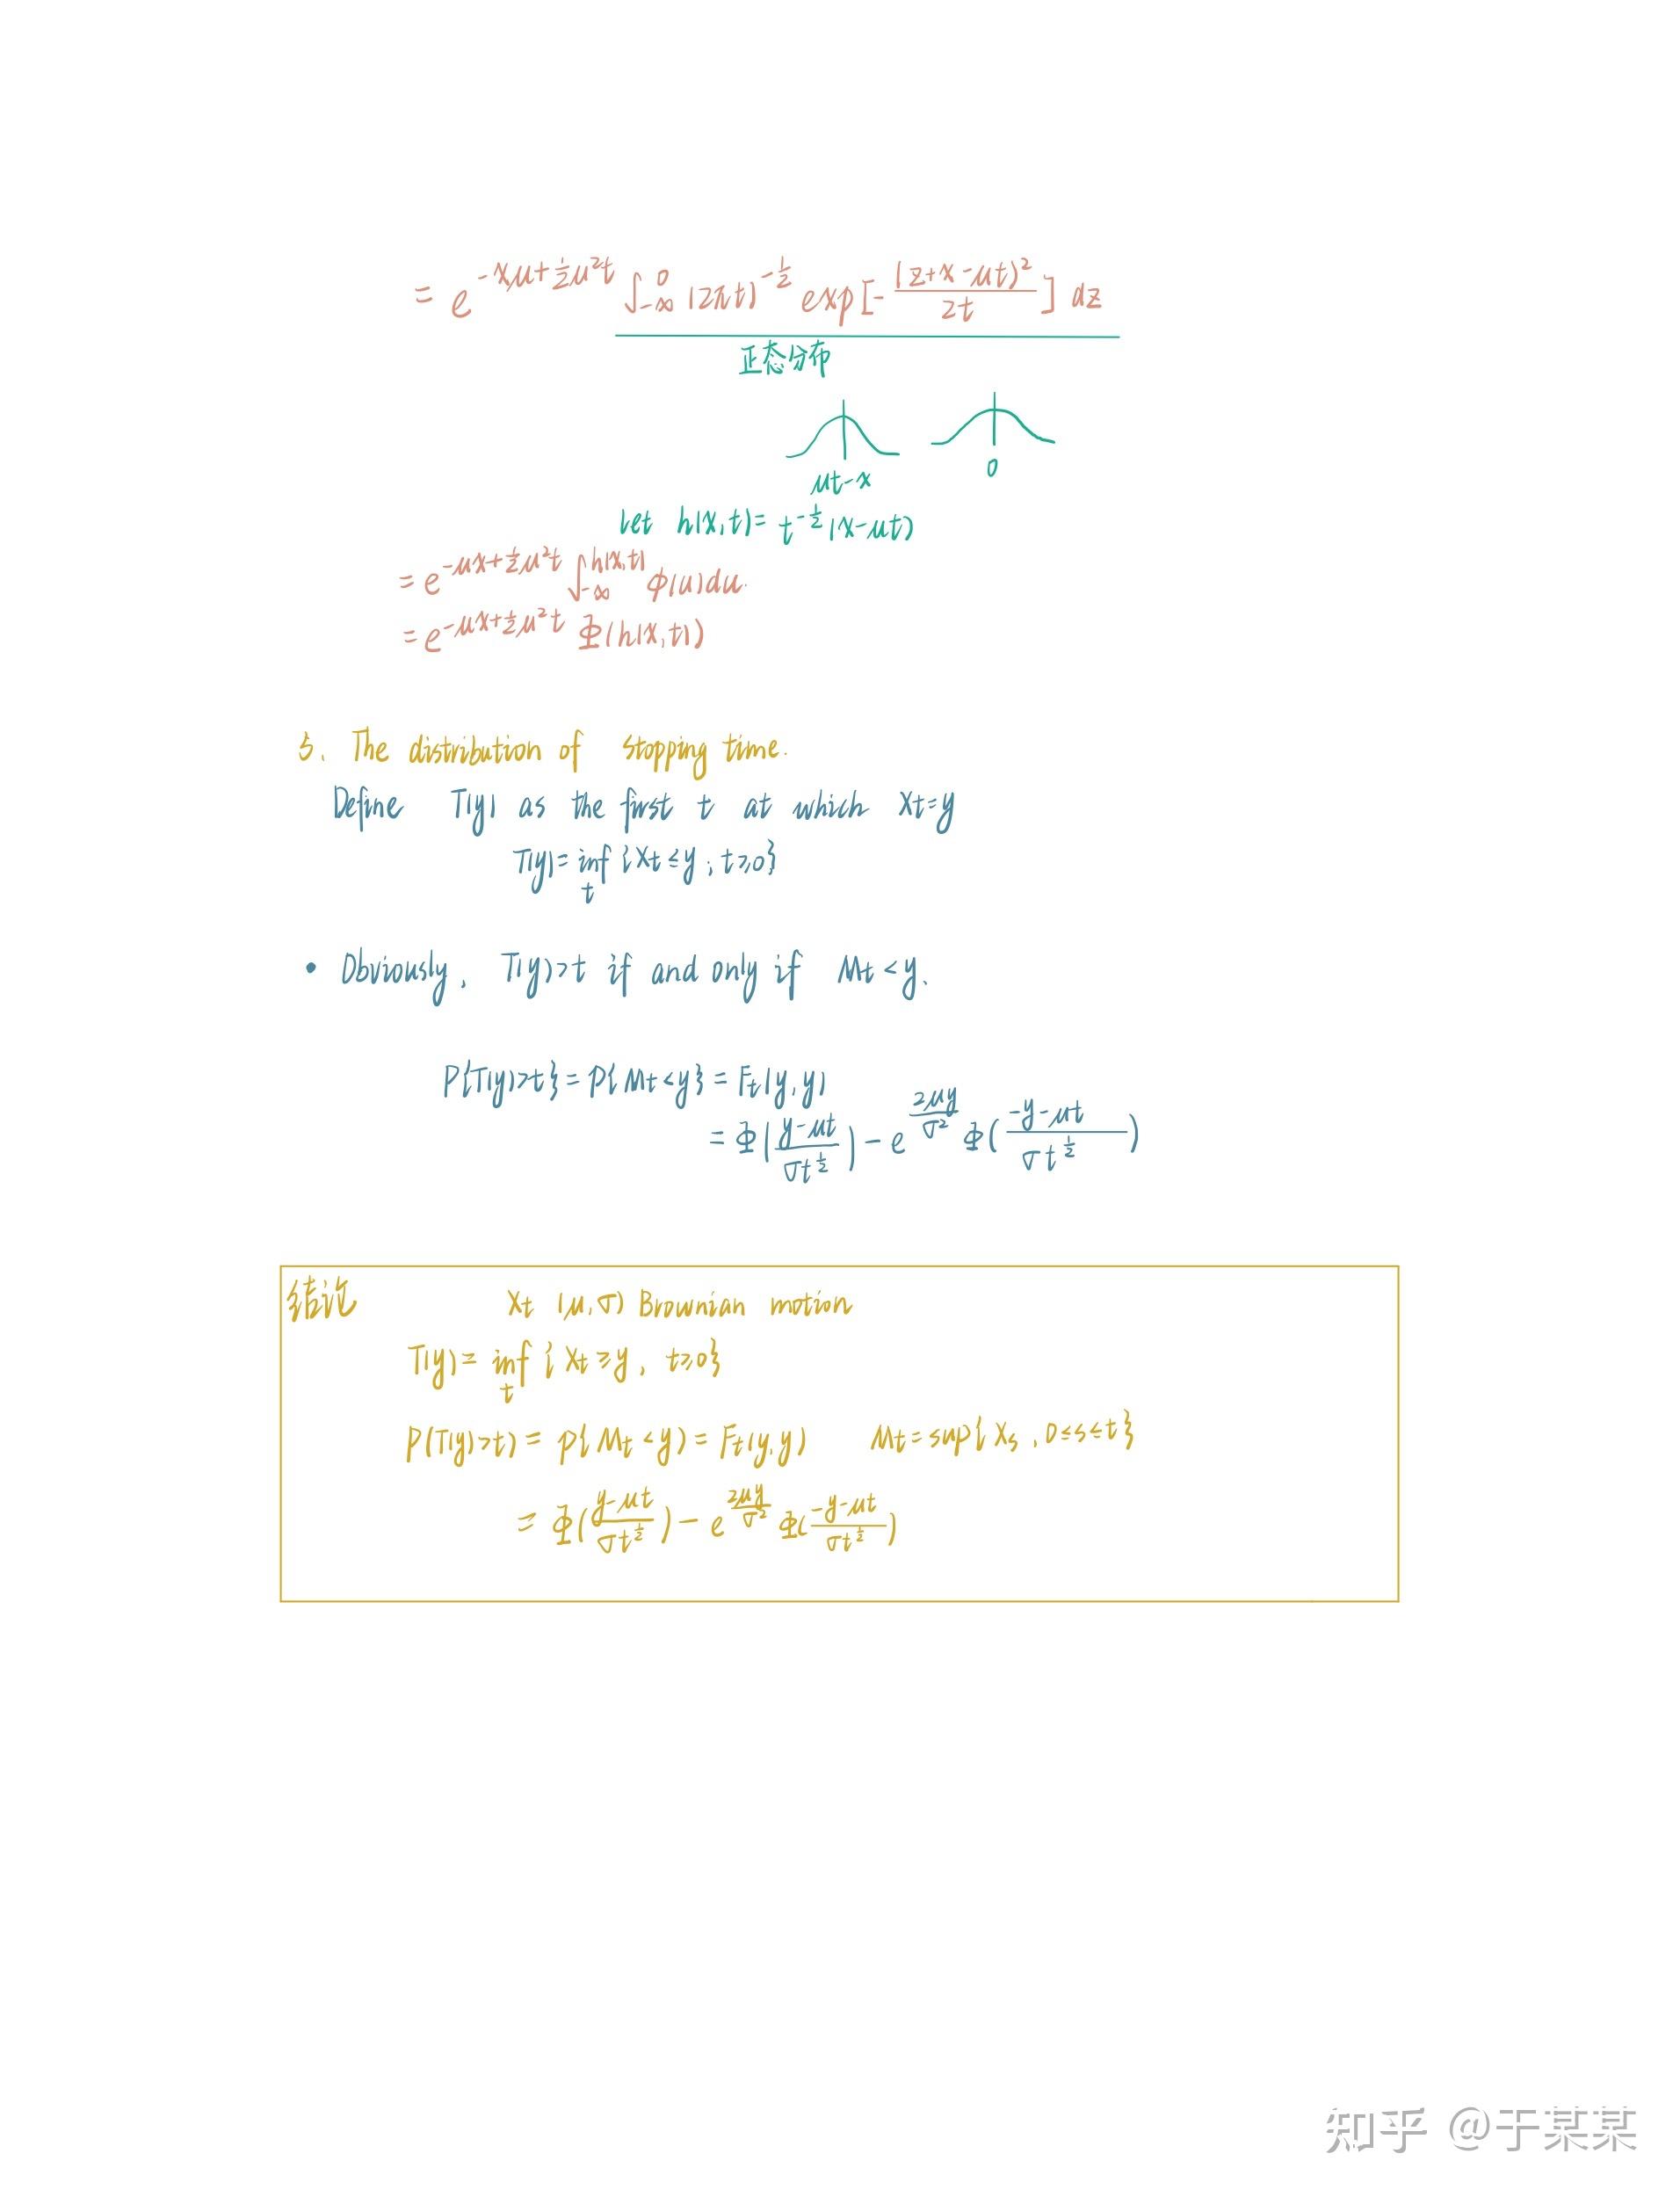 = e^{-xμ+½μ²t} ∫_{-∞}^{0} (2πt)^{-½} exp[-\frac{(z+x-μt)²}{2t}] dz
正态分布
μt-x 0
let h(x,t)= t^{-½}(x-μt)
= e^{-μx+½μ²t} ∫_{-∞}^{h(x,t)} φ(u)du.
= e^{-μx+½μ²t} Φ(h(x,t))
5. The distribution of stopping time.
Define T(y) as the first t at which Xt=y
T(y)= inf_t {Xt≤y, t≥0}
• Obviously, T(y)>t if and only if Mt<y.
P{T(y)>t} = P{Mt<y} = Ft(y,y)
= Φ(\frac{y-μt}{σt^{½}}) - e^{\frac{2μy}{σ²}} Φ(\frac{-y-μt}{σt^{½}})
结论 Xt (μ,σ) Brownian motion
T(y)= inf_t {Xt≥y, t≥0}
P(T(y)>t) = P{Mt<y) = Ft(y,y) Mt=sup{Xs, 0≤s≤t}
= Φ(\frac{y-μt}{σt^{½}}) - e^{\frac{2μy}{σ²}} Φ(\frac{-y-μt}{σt^{½}})
知乎 @于某某